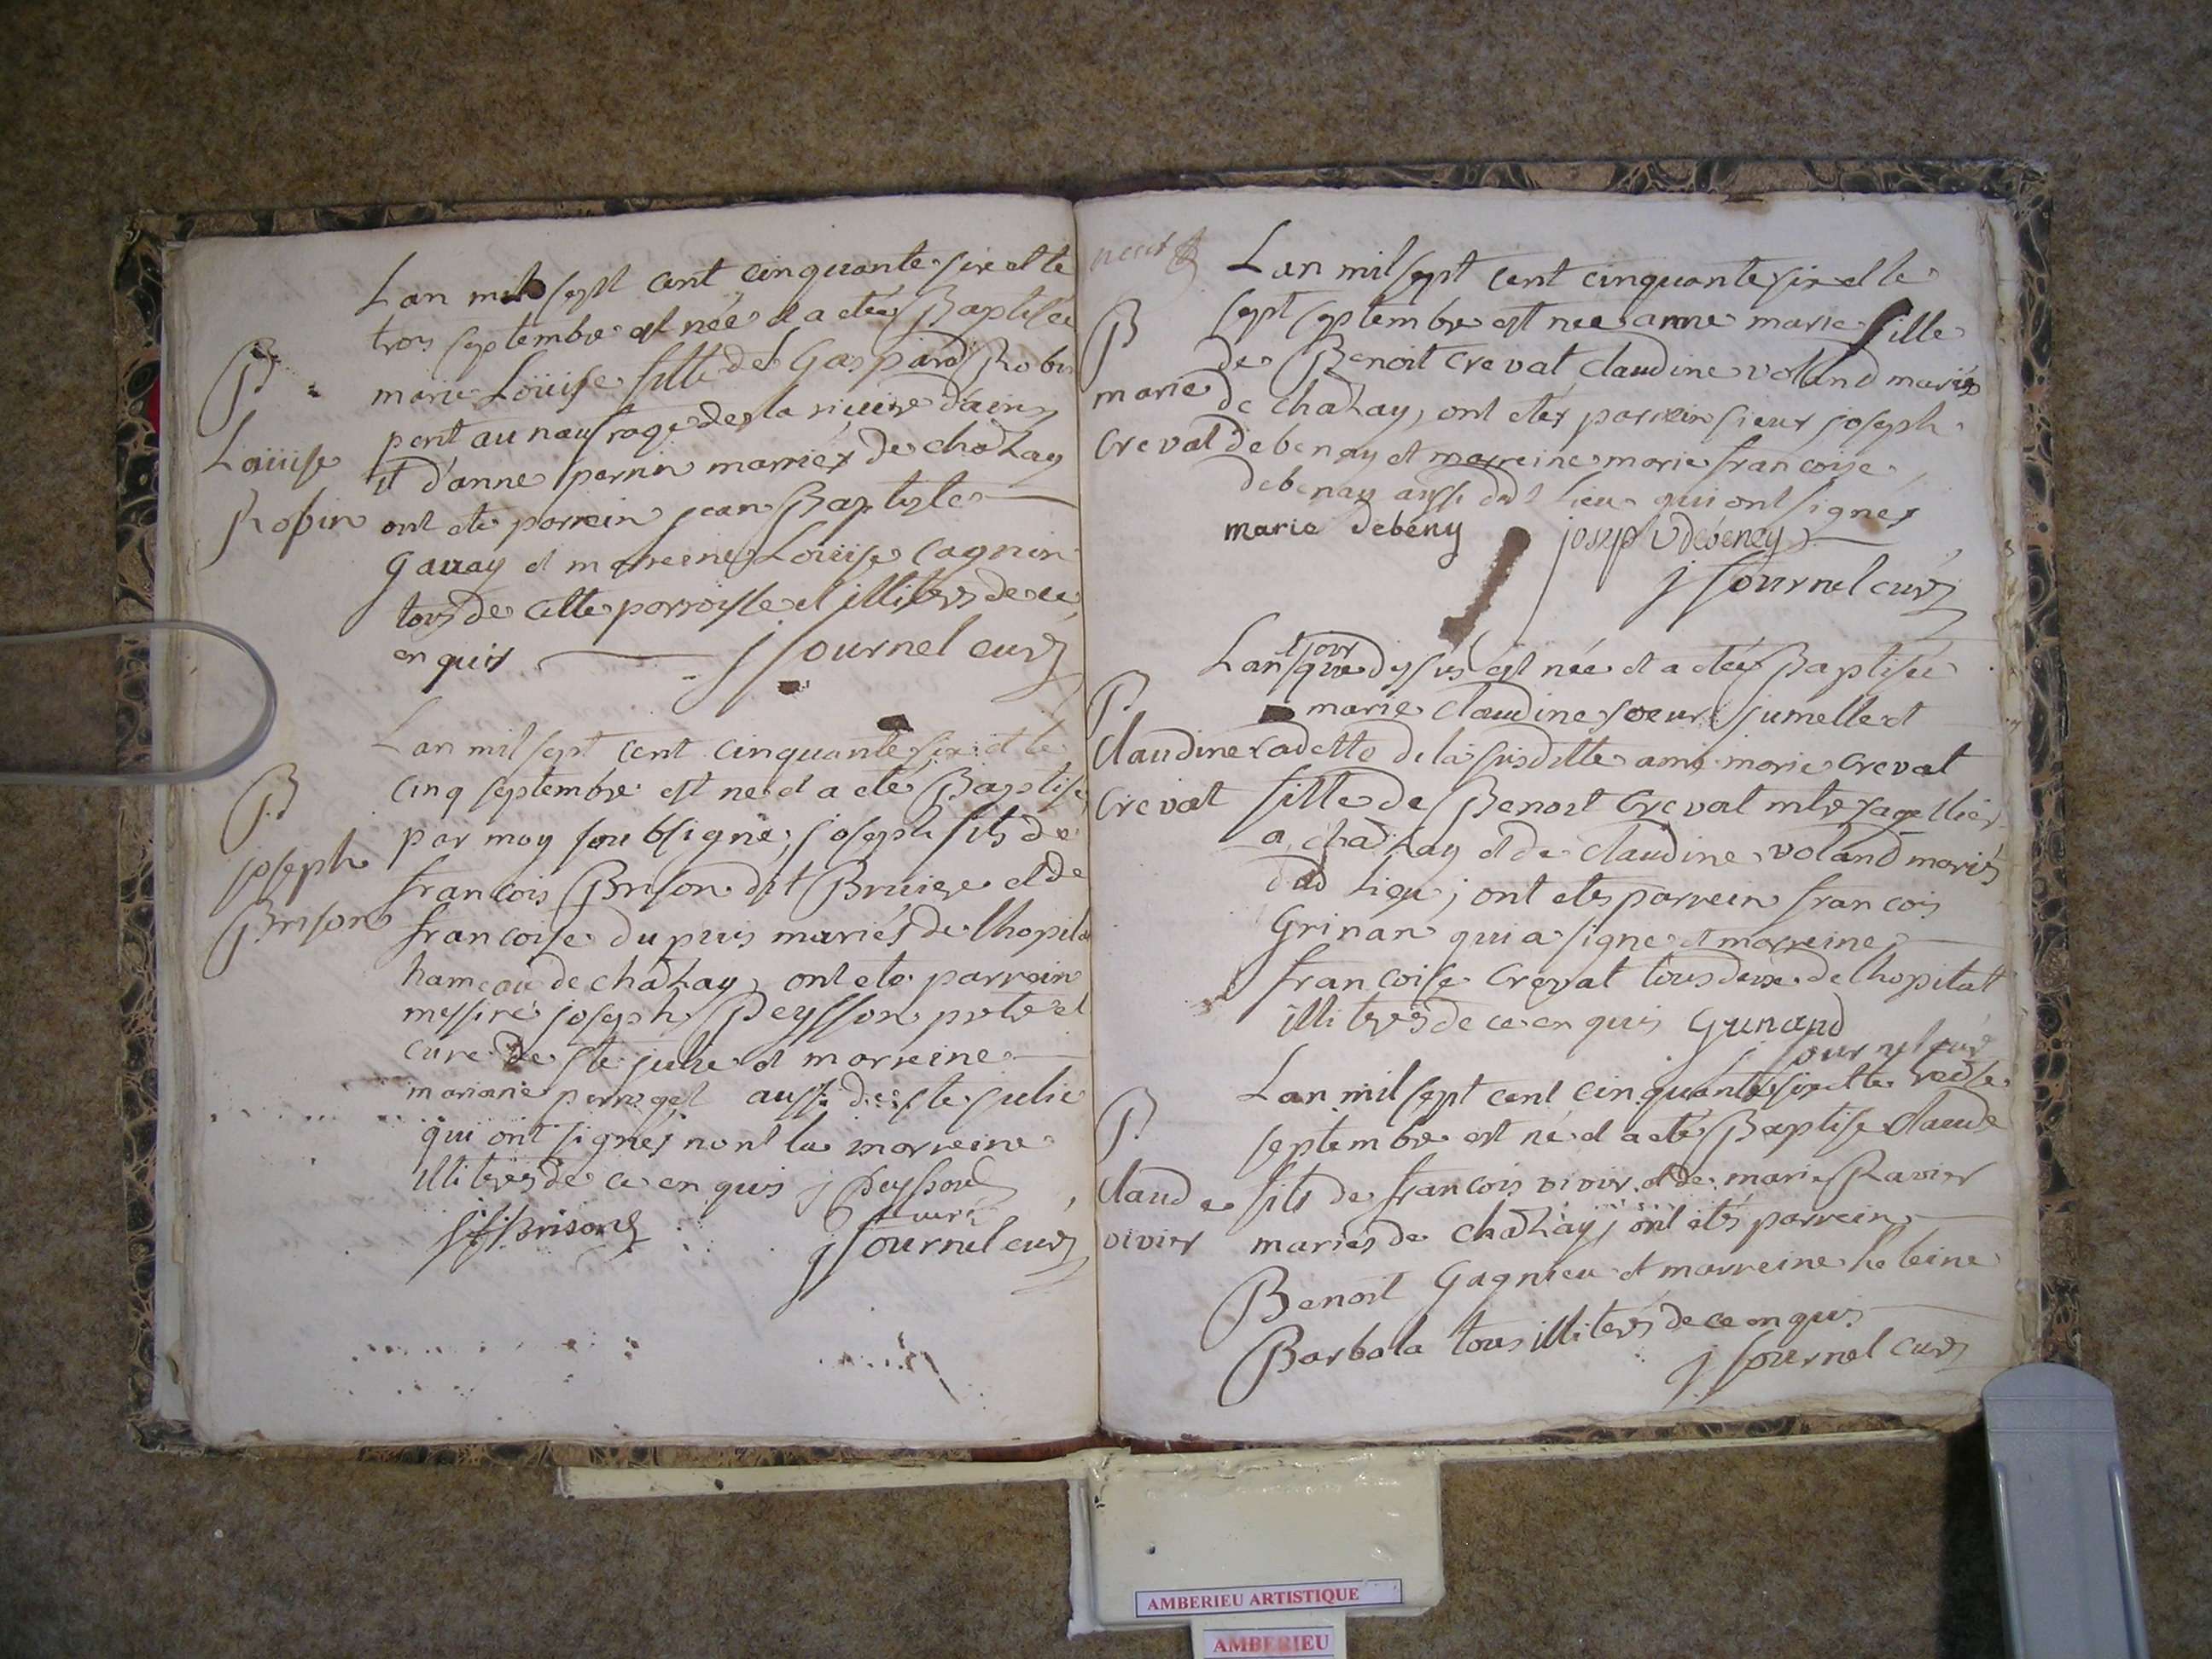 Lan mil sept cent cinquante six et le
trois septembre est née et a etée Baptisée
marie Loüise fille de Gaspard Robin
perit au naufrage de la riviere dain
et d'anne perrin mariéz de chaZay
ont ete parrein jean Baptiste
Gauay et marreine Loüise Cagnin
tous de cette parroisse et illitrés de ce
enquis j fournel curé
B
Loüise
Robin
Lan mil sept cent cinquante six et le
cinq septembre est ne et a eté Baptise
par moy soubsigne, joseph fils de
francois Brison dit Bruiere et de
francoise dupuis mariés de lhopital
hameau de chaZay, ont ete parrein
messire joseph Peysson pretre et
cure de ste julie et marreine
mariane aussi de ste julie
qui ont signés non la marreine
illitrés de ce enquis j Peysson
curé
Brison j fournel curé
B
joseph
Brison
Lan mil sept cent cinquante six et le
sept septembre est nee anne marie fille
de Benoit Crevat Claudine voland mariés
de chaZay, ont etéz parrein sieur joseph
debenay et marreine marie francoise
debenay aussi dud lieu qui ont signez
marie debény joseph debeney
j fournel curé
B
marie
Crevat
Lan et jour que dessus est née et a etée Baptisée
marie Claudine soeur jumelle et
cadette de la susditte anne marie Crevat
fille de Benoit Crevat mtre
a chaZay et de Claudine voland mariés
dud lieu, ont etés parrein francois
Grinan qui a signe et marreine
francoise Crevat tous deux de lhopital
illitrés de ce enquis Gunand
fournel curé
B
Claudine
Crevat
Lan mil sept cent cinquante six et le treise
septembre est né et a eté Baptise Claude
fils de francois vivier et de marie Ravier
mariés de chaZay, ont etés parrein
Benoit Gagnieu et marreine heleine
Barbala tous illitrés de ce enquis
j fournel curé
B
Claude
vivier
AMBERIEU ARTISTIQUE
AMBERIEU